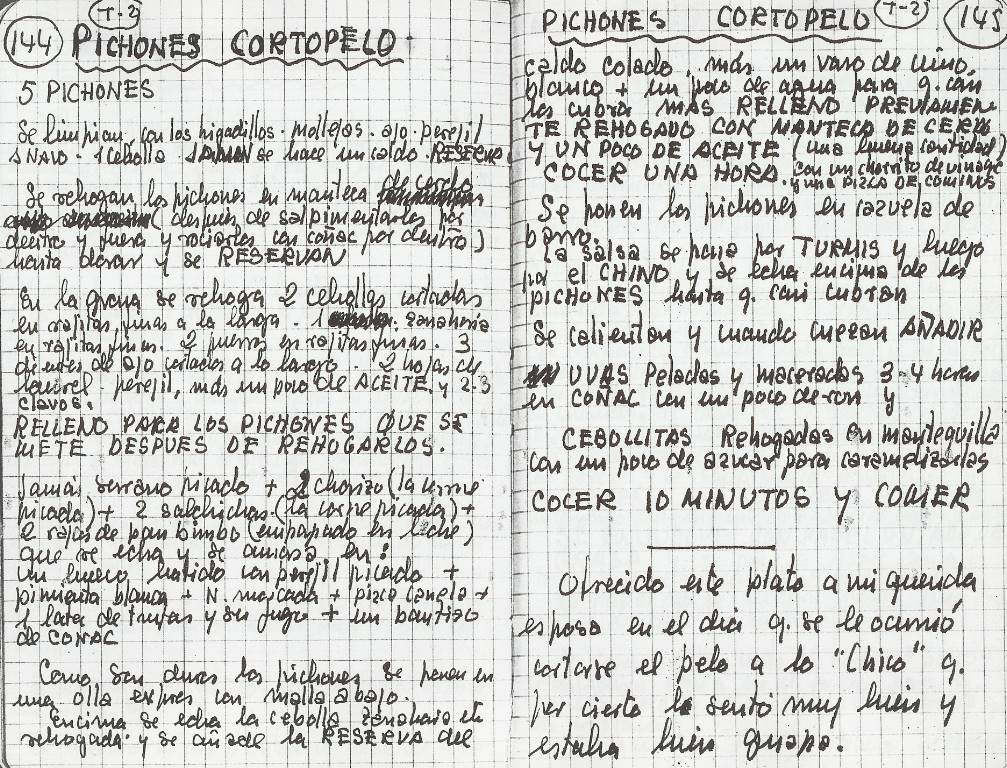 144 T-2
PICHONES CORTOPELO
5 PICHONES
Se limpian, con los higadillos - mollejas - ajo - perejil
1 NABO - 1 cebolla se hace un caldo RESERVA
Se rehogan los pichones en manteca de cerdo
(después de salpimentarlos por
dentro y fuera y rociarlos con coñac por dentro)
hasta dorar y se RESERVAN
En la grasa se rehoga 2 cebollas cortadas
en rajitas finas a la larga. 1 zanahoria
en rajitas finas. 2 puerros en rajitas finas. 3
dientes de ajo cortados a lo largo. 2 hojas de
laurel - perejil, más un poco de ACEITE y 2-3
clavos.
RELLENO PARA LOS PICHONES QUE SE
METE DESPUES DE REHOGARLOS.
Jamás serrano picado + 2 chorizo (la carne
picada) + 2 salchichas (la carne picada) +
2 rajas de pan bimbo (empapado en leche)
que se echa y se amasa en:
un huevo batido con perejil picado +
pimienta blanca + N. moscada + pizca canela +
1 lata de trufas y su jugo + un bautizo
de COÑAC
Como son duros los pichones se ponen en
una olla expres con malla abajo.
Encima se echa la cebolla zanahoria etc
rehogada y se añade la RESERVA del
PICHONES CORTOPELO T-2 145
caldo colado, más un vaso de vino
blanco + un poco de agua para q. casi
los cubra MAS RELLENO PREVIAMEN
TE REHOGADO CON MANTECA DE CERDO
Y UN POCO DE ACEITE (una buena cantidad)
COCER UNA HORA. con un chorrito de vinagre
y una PIZCA DE COMINOS
Se ponen los pichones en cazuela de
barro.
La salsa se pasa por TURMIS y luego
por el CHINO y se echa encima de los
PICHONES hasta q. casi cubran
Se calientan y cuando cuezan AÑADIR
UVAS Peladas y maceradas 3-4 horas
en COÑAC con un poco de ron y
CEBOLLITAS Rehogadas en mantequilla
con un poco de azucar para caramelizarlas
COCER 10 MINUTOS Y COMER
Ofrecido este plato a mi querida
esposa en el dia q. se le ocurrió
cortarse el pelo a lo "Chico" q.
por cierto le sentó muy bien y
estaba bien guapa.